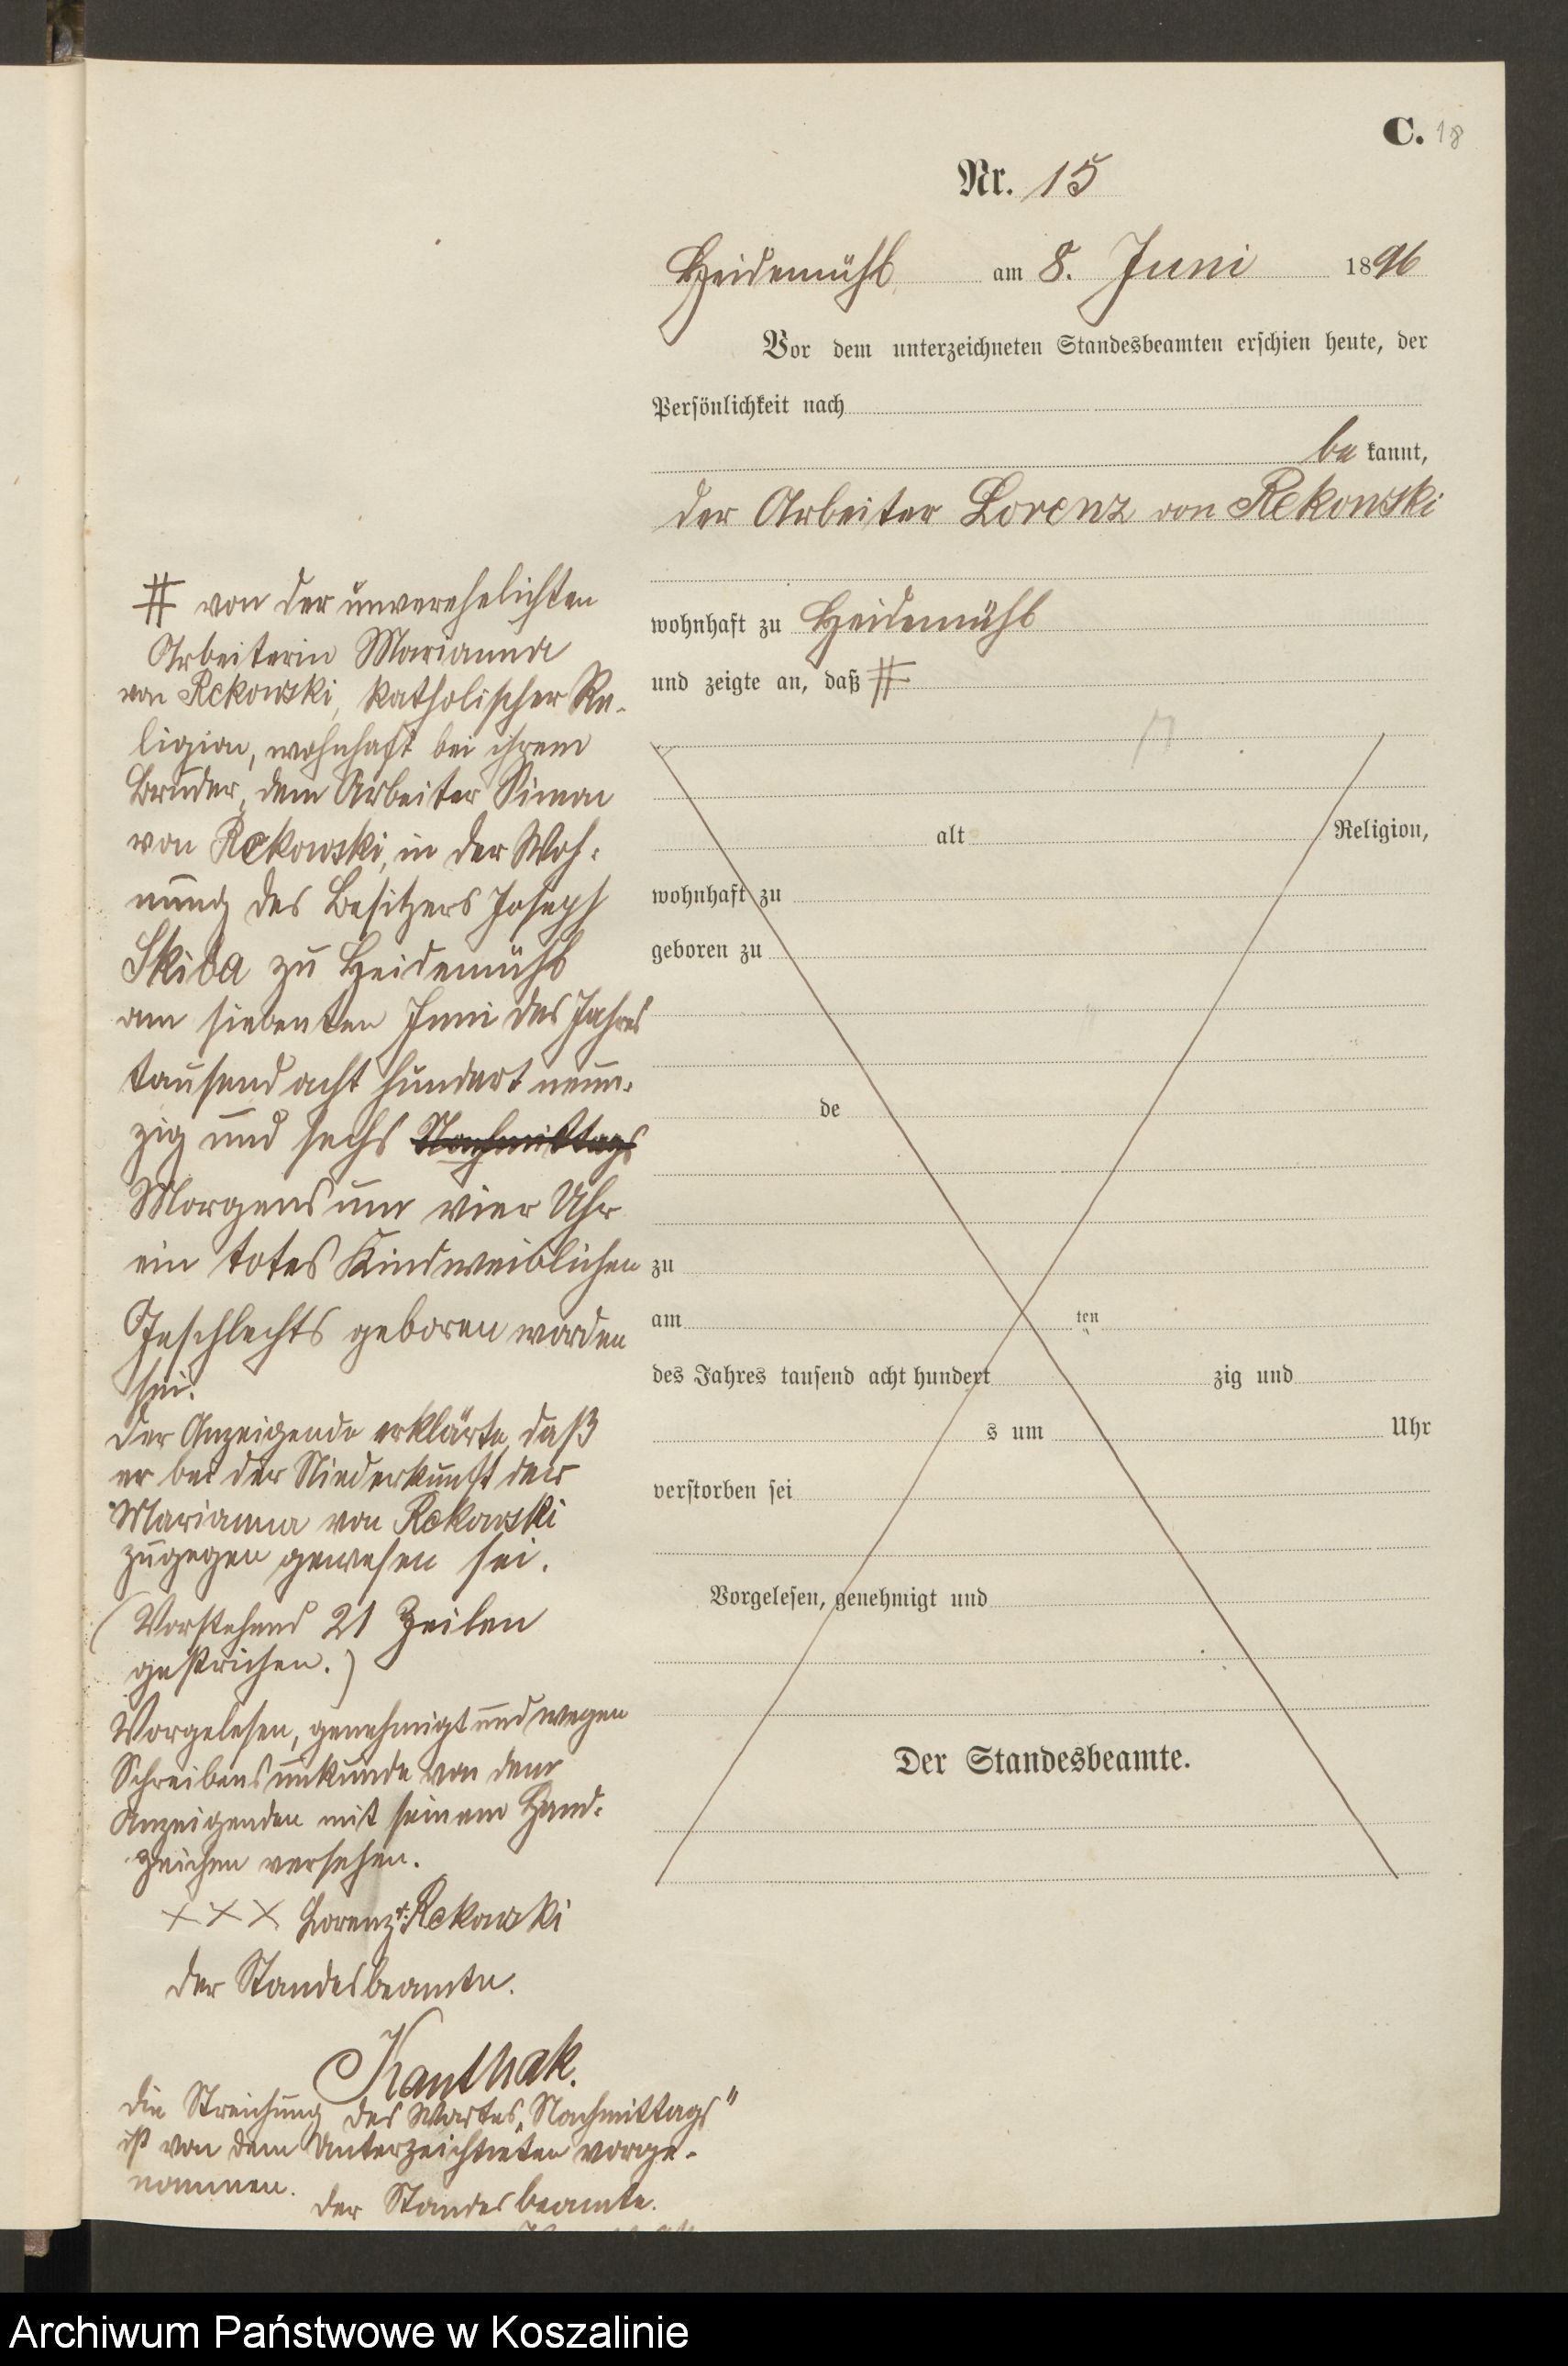 C. 18
Nr. 15
Heidemühl am 8. Juni 1896
Vor dem unterzeichneten Standesbeamten erschien heute, der
Persönlichkeit nach
be kannt,
der Arbeiter Lorenz von Rekowski
wohnhaft zu Heidemühl
und zeigte an, daß #
alt Religion,
wohnhaft zu
geboren zu
de
zu
am ten
des Jahres tausend acht hundert zig und
s um Uhr
verstorben sei
Vorgelesen, genehmigt und
Der Standesbeamte.
# von der unverehelichten
Arbeiterin Marianna
von Rekowski, katholischer Re-
ligion, wohnhaft bei ihrem
Bruder, dem Arbeiter Simon
von Rekowski, in der Woh-
nung des Besitzers Joseph
Skiba zu Heidemühl
am siebenten Juni des Jahres
tausend acht hundert neun-
zig und sechs Nachmittags
Morgens um vier Uhr
ein totes Kind weiblichen
Geschlechts geboren worden
sei.
Der Anzeigende erklärte, daß
er bei der Niederkunft der
Marianna von Rekowski
zugegen gewesen sei.
(Vorstehend 21 Zeilen
gestrichen.)
Vorgelesen, genehmigt und wegen
Schreibensunkunde von dem
Anzeigenden mit seinem Hand-
zeichen versehen.
XXX Lorenz v. Rekowski
Der Standesbeamte.
Kanthak.
Die Streichung des Wortes „Nachmittags"
ist von dem Unterzeichneten vorge-
nommen.
Der Standesbeamte.
Archiwum Państwowe w Koszalinie